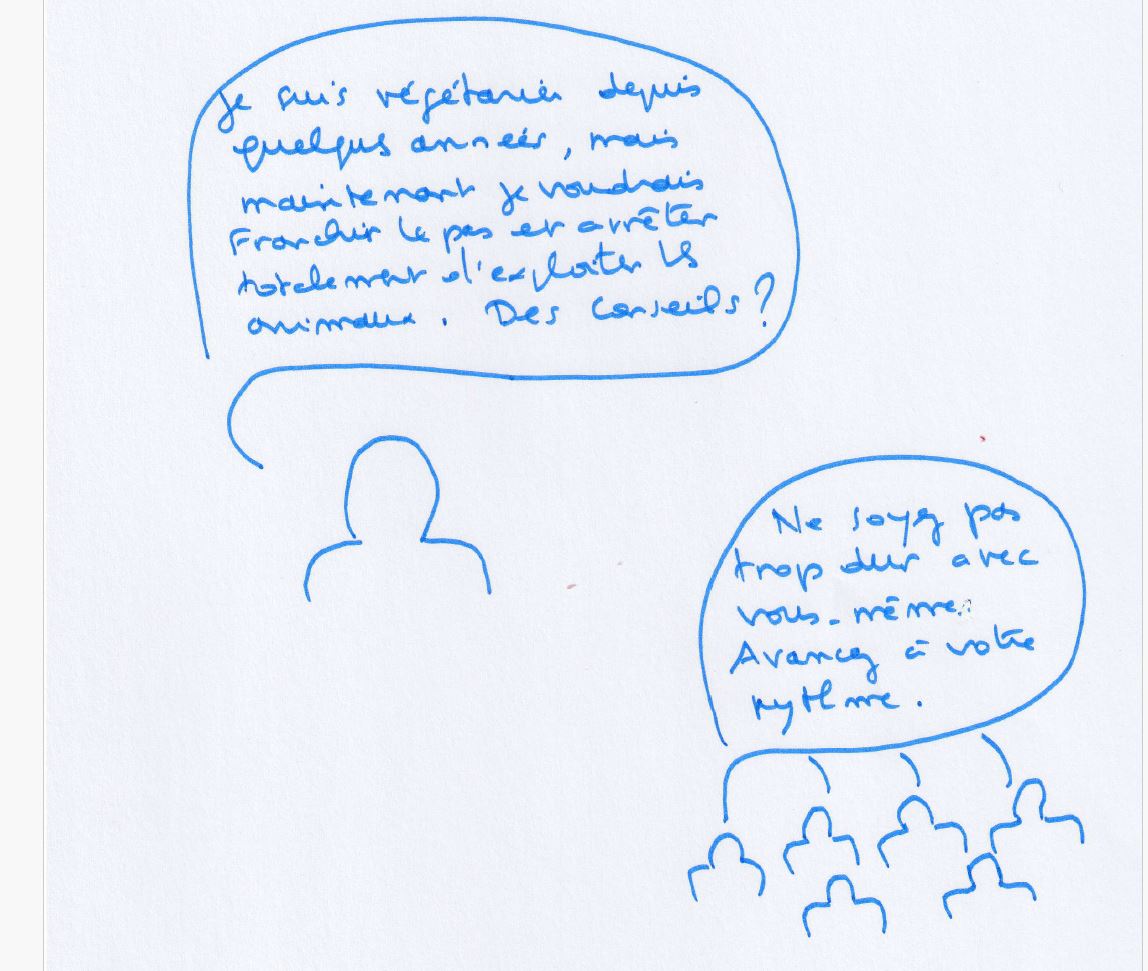 Je suis végétarien depuis
quelques années, mais
maintenant je voudrais
franchir le pas et arrêter
totalement d'exploiter les
animaux. Des conseils ?
Ne soyez pas
trop dur avec
vous-même.
Avancez à votre
rythme.